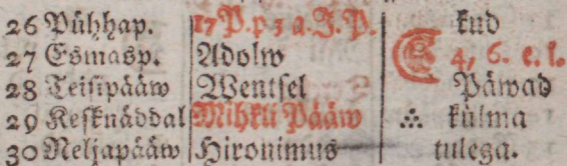 26 Pühhap. 17 P. p 3 a. J. P. kud
27 Esmasp. Adolw 4, 6. e. l.
28 Teisipääw Wentsel Päwad
29 Kesknäddal Mihkli Pääw ⁂ külma
30 Neljapääw Hironimus tulega.